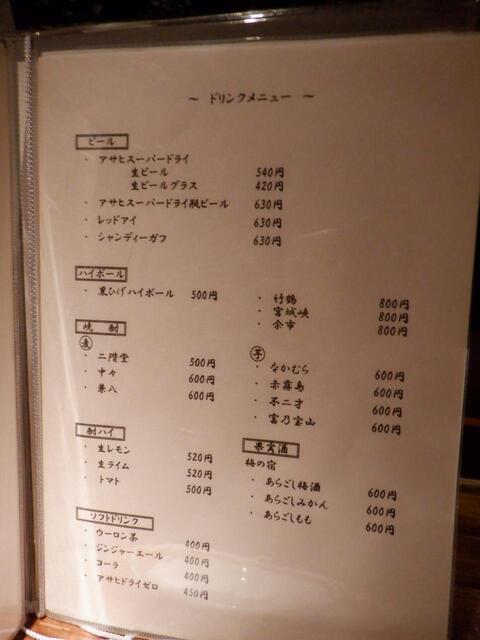 ～ ドリンクメニュー ～
ビール
・ アサヒスーパードライ
生ビール 540円
生ビールグラス 420円
・ アサヒスーパードライ瓶ビール 630円
・ レッドアイ 630円
・ シャンディーガフ 630円
ハイボール
・ 黒ひげハイボール 500円
・ 竹鶴 800円
・ 宮城峡 800円
・ 余市 800円
焼 酎
麦
・ 二階堂 500円
・ 中々 600円
・ 兼八 600円
芋
・ なかむら 600円
・ 赤霧島 600円
・ 不二才 600円
・ 富乃宝山 600円
酎ハイ
・ 生レモン 520円
・ 生ライム 520円
・ トマト 500円
果実酒
梅の宿
・ あらごし梅酒 600円
・ あらごしみかん 600円
・ あらごしもも 600円
ソフトドリンク
・ ウーロン茶 400円
・ ジンジャーエール 400円
・ コーラ 400円
・ アサヒドライゼロ 450円